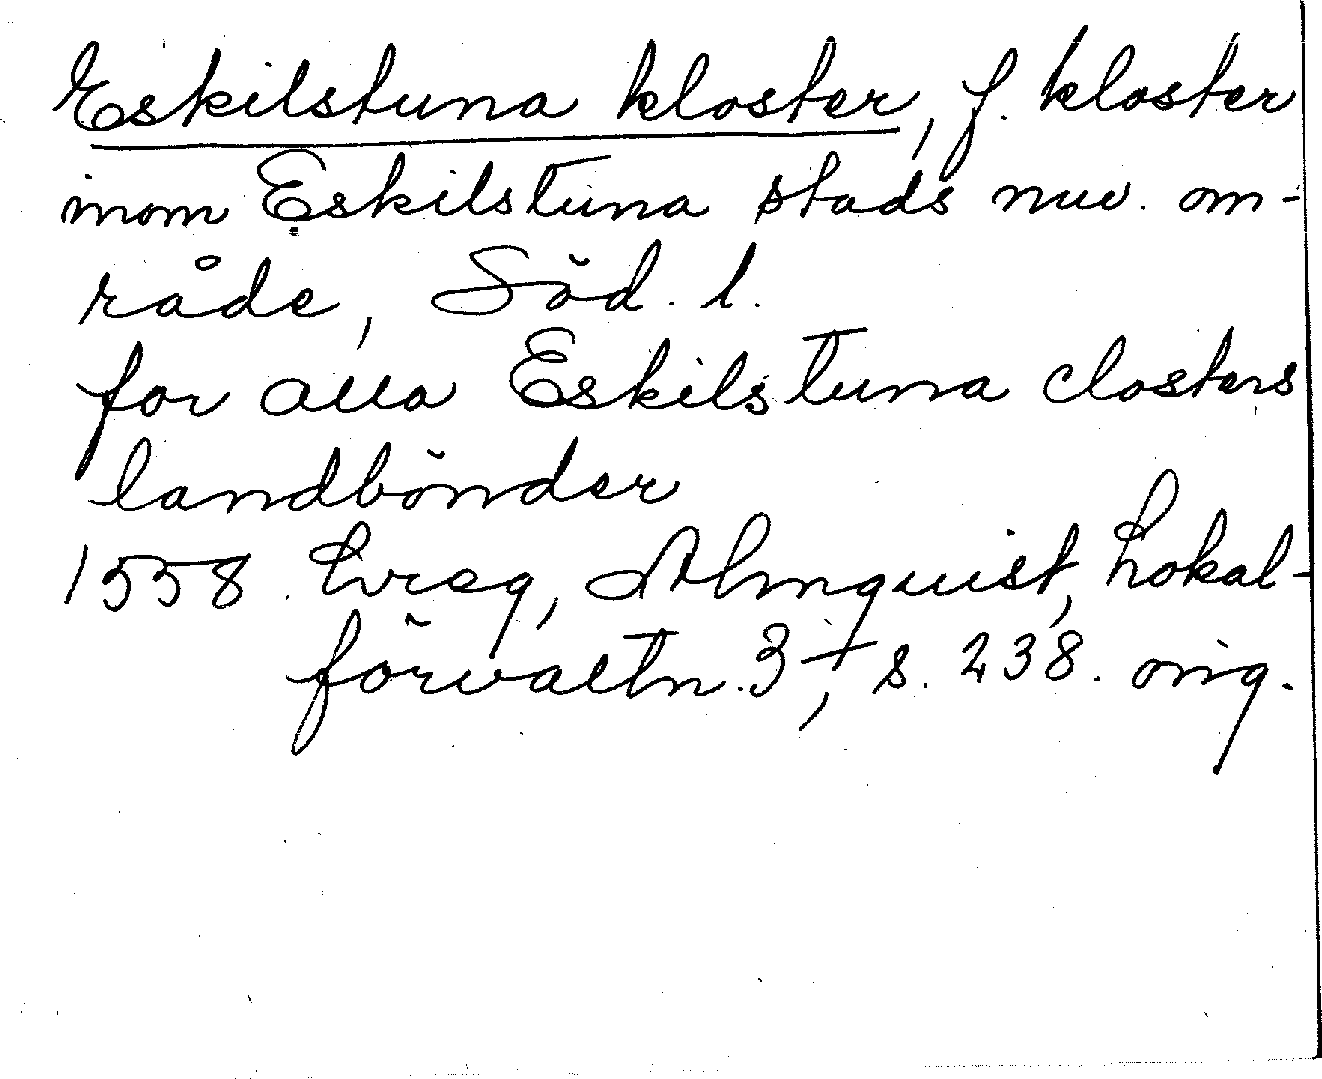 Eskilstuna kloster, f. kloster
inom Eskilstuna stads nuv. om-
råde, Söd. l.
for alla Eskilstuna closters
landbönder
1558. Almquist, Lokal-
förvaltn. 3, s. 238. orig.